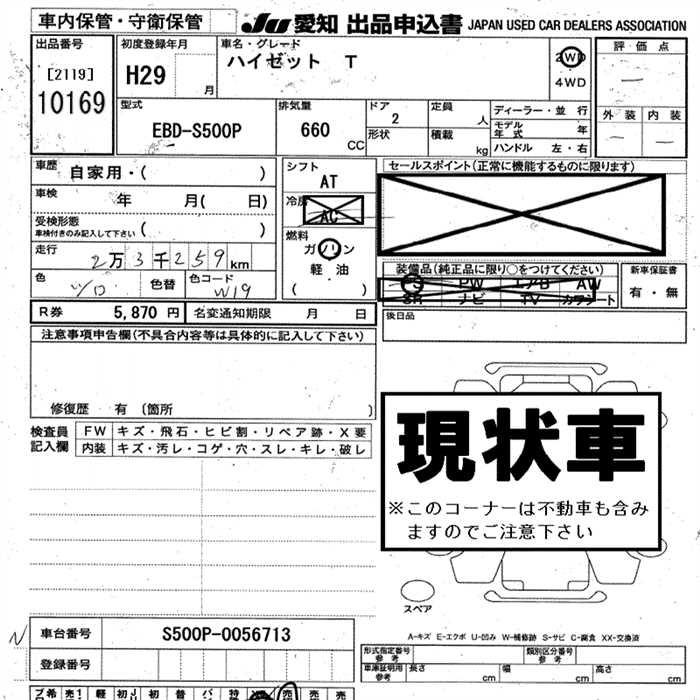 車内保管・守衛保管
JU 愛知 出品申込書 JAPAN USED CAR DEALERS ASSOCIATION
出品番号
[2119]
10169
初度登録年月
H29 月
車名・グレード
ハイゼット T
2WD
4WD
評価点
外装 内装
型式
EBD-S500P
排気量
660 CC
ドア
2
形状
定員 人
積載 kg
ディーラー・並行
モデル年式 年
ハンドル 左・右
車歴
自家用・( )
車検 年 月( 日)
受検形態
車検付きのみ記入して下さい ( )
走行 2万3千259km
色 色替 色コード
W19
シフト
AT
冷房
AC
燃料
ガソリン
軽油
( )
セールスポイント(正常に機能するものに限ります)
装備品(純正品に限り○をつけてください)
PS PW エアB AW
SR ナビ TV カワシート
新車保証書
有・無
後日品
R券 5,870 円 名変通知期限 月 日
注意事項申告欄(不具合内容等は具体的に記入して下さい)
修復歴 有 〔箇所 〕
検査員記入欄
FW キズ・飛石・ヒビ割・リペア跡・X要
内装 キズ・汚レ・コゲ・穴・スレ・キレ・破レ
現状車
※このコーナーは不動車も含み
ますのでご注意下さい
スペア
A-キズ E-エクボ U-凹み W-補修跡 S-サビ C-腐食 XX-交換済
N
車台番号 S500P-0056713
登録番号
形式指定番号
参考
類別区分番号
参考
車庫証明用
参考
長さ cm 幅 cm 高さ cm